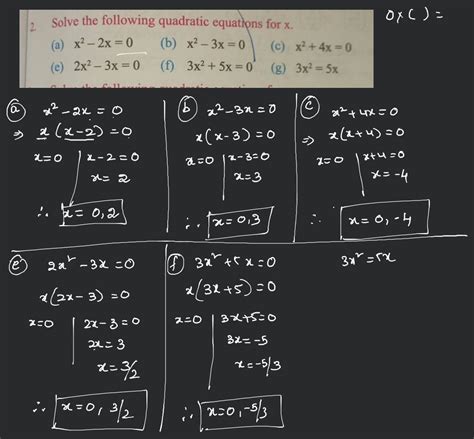 2. Solve the following quadratic equations for x.
(a) x² – 2x = 0 (b) x² – 3x = 0 (c) x² + 4x = 0
(e) 2x² – 3x = 0 (f) 3x² + 5x = 0 (g) 3x² = 5x
0 x ( ) =
(a) x² - 2x = 0
⇒ x (x-2) = 0
x=0 | x-2=0
x= 2
∴ x = 0, 2
(b) x² - 3x = 0
x (x-3) = 0
x=0 | x-3=0
x=3
∴ x=0,3
(c) x² + 4x = 0
⇒ x (x+4) = 0
x=0 | x+4=0
x= -4
∴ x = 0, -4
(e) 2x² - 3x = 0
x (2x-3) = 0
x=0 | 2x-3=0
2x=3
x=3/2
∴ x=0, 3/2
(f) 3x² + 5x = 0
x (3x+5) = 0
x=0 | 3x+5=0
3x=-5
x=-5/3
∴ x=0, -5/3
3x² = 5x